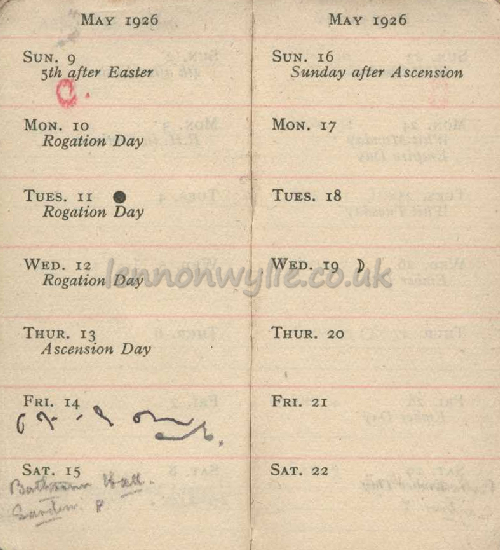 MAY 1926
SUN. 9
5th after Easter
C.
MON. 10
Rogation Day
TUES. 11
Rogation Day
WED. 12
Rogation Day
THUR. 13
Ascension Day
FRI. 14
SAT. 15
Hall.
MAY 1926
SUN. 16
Sunday after Ascension
MON. 17
TUES. 18
WED. 19
THUR. 20
FRI. 21
SAT. 22
lennonwylie.co.uk